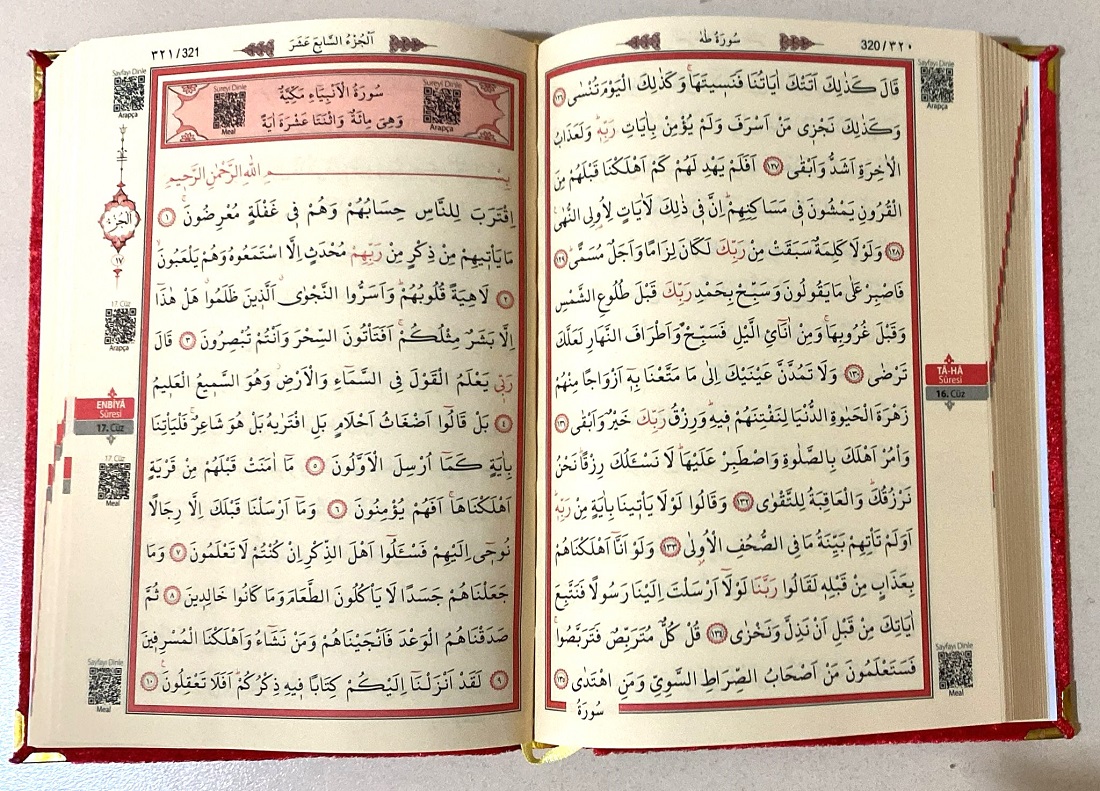 سُورَةُ طٰهٰ
320/٣٢٠
قَالَ كَذٰلِكَ اَتَتْكَ اٰيَاتُنَا فَنَسٖيتَهَاۚ وَكَذٰلِكَ الْيَوْمَ تُنْسٰى ١٢٦
وَكَذٰلِكَ نَجْزٖى مَنْ اَسْرَفَ وَلَمْ يُؤْمِنْ بِاٰيَاتِ رَبِّهٖۜ وَلَعَذَابُ
الْاٰخِرَةِ اَشَدُّ وَاَبْقٰى ١٢٧ اَفَلَمْ يَهْدِ لَهُمْ كَمْ اَهْلَكْنَا قَبْلَهُمْ مِنَ
الْقُرُونِ يَمْشُونَ فٖى مَسَاكِنِهِمْۜ اِنَّ فٖى ذٰلِكَ لَاٰيَاتٍ لِاُولِى النُّهٰى
١٢٨ وَلَوْلَا كَلِمَةٌ سَبَقَتْ مِنْ رَبِّكَ لَكَانَ لِزَامًا وَاَجَلٌ مُسَمًّىۜ ١٢٩
فَاصْبِرْ عَلٰى مَا يَقُولُونَ وَسَبِّحْ بِحَمْدِ رَبِّكَ قَبْلَ طُلُوعِ الشَّمْسِ
وَقَبْلَ غُرُوبِهَاۚ وَمِنْ اٰنَآئِ الَّيْلِ فَسَبِّحْ وَاَطْرَافَ النَّهَارِ لَعَلَّكَ
تَرْضٰى ١٣٠ وَلَا تَمُدَّنَّ عَيْنَيْكَ اِلٰى مَا مَتَّعْنَا بِهٖٓ اَزْوَاجًا مِنْهُمْ
زَهْرَةَ الْحَيٰوةِ الدُّنْيَا لِنَفْتِنَهُمْ فٖيهِۜ وَرِزْقُ رَبِّكَ خَيْرٌ وَاَبْقٰى ١٣١
وَاْمُرْ اَهْلَكَ بِالصَّلٰوةِ وَاصْطَبِرْ عَلَيْهَاۜ لَا نَسْـَٔلُكَ رِزْقًاۜ نَحْنُ
نَرْزُقُكَۜ وَالْعَاقِبَةُ لِلتَّقْوٰى ١٣٢ وَقَالُوا لَوْلَا يَاْتٖينَا بِاٰيَةٍ مِنْ رَبِّهٖۜ
اَوَلَمْ تَاْتِهِمْ بَيِّنَةُ مَا فِى الصُّحُفِ الْاُولٰى ١٣٣ وَلَوْ اَنَّٓا اَهْلَكْنَاهُمْ
بِعَذَابٍ مِنْ قَبْلِهٖ لَقَالُوا رَبَّنَا لَوْلَٓا اَرْسَلْتَ اِلَيْنَا رَسُولًا فَنَتَّبِعَ
اٰيَاتِكَ مِنْ قَبْلِ اَنْ نَذِلَّ وَنَخْزٰى ١٣٤ قُلْ كُلٌّ مُتَرَبِّصٌ فَتَرَبَّصُواۚ
فَسَتَعْلَمُونَ مَنْ اَصْحَابُ الصِّرَاطِ السَّوِىِّ وَمَنِ اهْتَدٰى ١٣٥
سُورَةُ
Sayfayı Dinle
Arapça
TÂ-HÂ
Sûresi
16. Cüz
Sayfayı Dinle
Meal
٣٢١/321
اَلْجُزْءُ السَّابِعَ عَشَرَ
Sureyi Dinle
Arapça
سُورَةُ الْاَنْبِيَاءِ مَكِّيَّةٌ
وَهِىَ مِائَةٌ وَاثْنَتَا عَشْرَةَ اٰيَةً
Sureyi Dinle
Meal
بِسْمِ اللّٰهِ الرَّحْمٰنِ الرَّحٖيمِ
اِقْتَرَبَ لِلنَّاسِ حِسَابُهُمْ وَهُمْ فٖى غَفْلَةٍ مُعْرِضُونَۚ ١
مَا يَاْتٖيهِمْ مِنْ ذِكْرٍ مِنْ رَبِّهِمْ مُحْدَثٍ اِلَّا اسْتَمَعُوهُ وَهُمْ يَلْعَبُونَۙ
٢ لَاهِيَةً قُلُوبُهُمْۜ وَاَسَرُّوا النَّجْوٰىۗ اَلَّذٖينَ ظَلَمُواۗ هَلْ هٰذَٓا
اِلَّا بَشَرٌ مِثْلُكُمْۚ اَفَتَاْتُونَ السِّحْرَ وَاَنْتُمْ تُبْصِرُونَ ٣ قَالَ
رَبّٖى يَعْلَمُ الْقَوْلَ فِى السَّمَٓاءِ وَالْاَرْضِۘ وَهُوَ السَّمٖيعُ الْعَلٖيمُ
٤ بَلْ قَالُٓوا اَضْغَاثُ اَحْلَامٍ بَلِ افْتَرٰيهُ بَلْ هُوَ شَاعِرٌۚ فَلْيَاْتِنَا
بِاٰيَةٍ كَمَٓا اُرْسِلَ الْاَوَّلُونَ ٥ مَٓا اٰمَنَتْ قَبْلَهُمْ مِنْ قَرْيَةٍ
اَهْلَكْنَاهَاۚ اَفَهُمْ يُؤْمِنُونَ ٦ وَمَٓا اَرْسَلْنَا قَبْلَكَ اِلَّا رِجَالًا
نُوحٖٓى اِلَيْهِمْ فَسْـَٔلُٓوا اَهْلَ الذِّكْرِ اِنْ كُنْتُمْ لَا تَعْلَمُونَ ٧ وَمَا
جَعَلْنَاهُمْ جَسَدًا لَا يَاْكُلُونَ الطَّعَامَ وَمَا كَانُوا خَالِدٖينَ ٨ ثُمَّ
صَدَقْنَاهُمُ الْوَعْدَ فَاَنْجَيْنَاهُمْ وَمَنْ نَشَٓاءُ وَاَهْلَكْنَا الْمُسْرِفٖينَ
٩ لَقَدْ اَنْزَلْنَٓا اِلَيْكُمْ كِتَابًا فٖيهِ ذِكْرُكُمْۜ اَفَلَا تَعْقِلُونَۚ ١٠
Sayfayı Dinle
Arapça
اَلْجُزْءُ
١٧
17. Cüz
Arapça
ENBİYÂ
Sûresi
17. Cüz
17. Cüz
Meal
Sayfayı Dinle
Meal